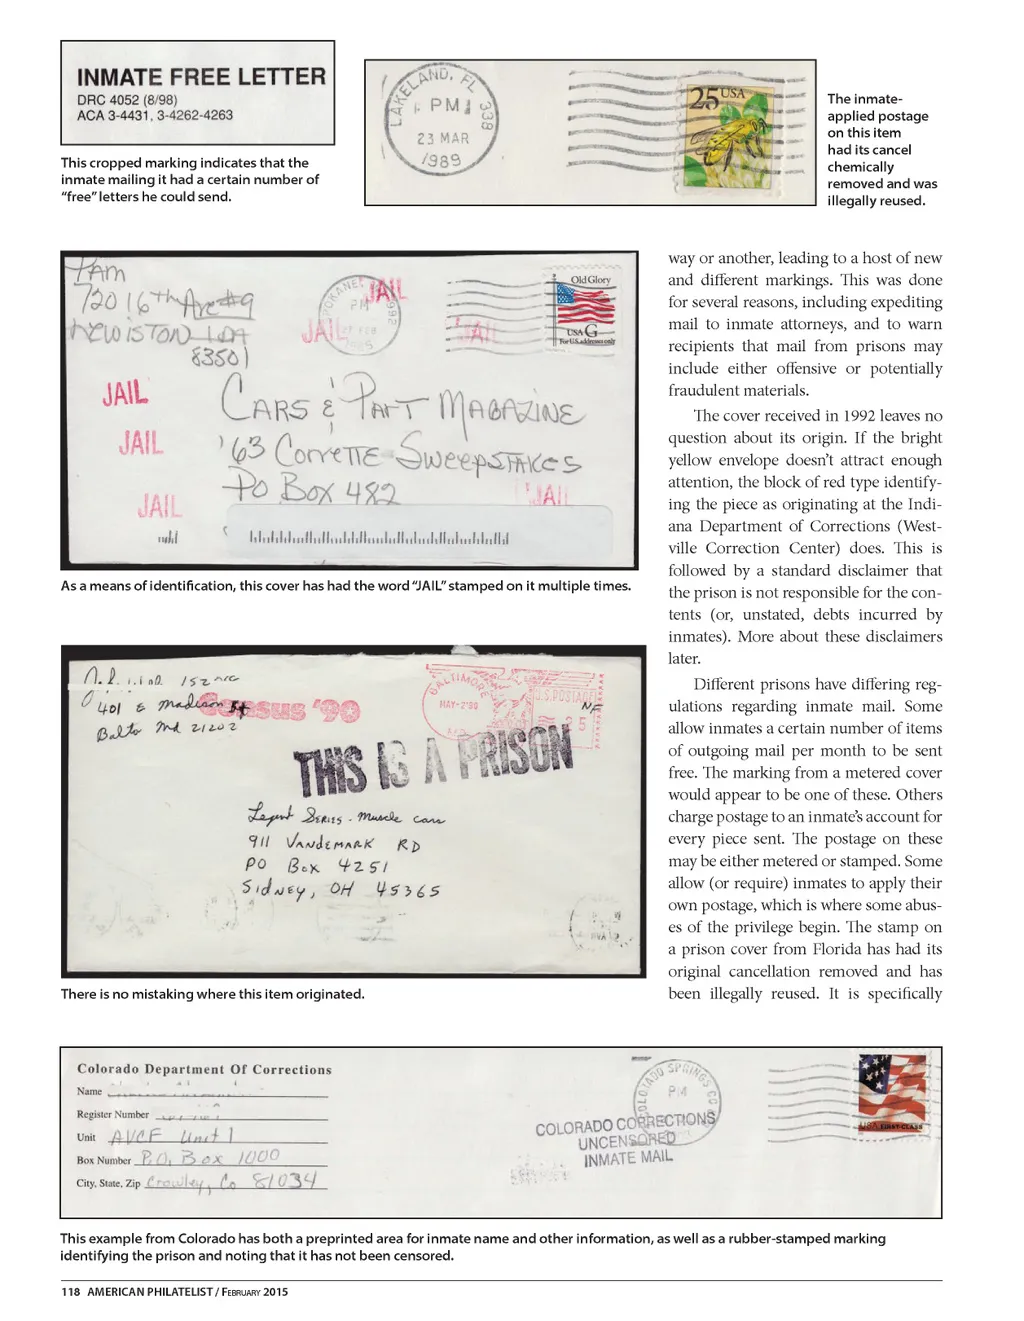 INMATE FREE LETTER
DRC 4052 (8/98)
ACA 3-4431, 3-4262-4263
This cropped marking indicates that the
inmate mailing it had a certain number of
“free” letters he could send.
LAKELAND, FL 338
PM
23 MAR
1989
25 USA
The inmate-
applied postage
on this item
had its cancel
chemically
removed and was
illegally reused.
720 16th Ave #9
LEWISTON IDA
83501
SPOKANE, 992
PM
FEB
1995
JAIL
JAIL
JAIL
Old Glory
USA G
For U.S. addresses only
JAIL
JAIL
JAIL
JAIL
CARS & PART MAGAZINE
'63 Corvette Sweepstakes
PO Box 482
As a means of identification, this cover has had the word “JAIL” stamped on it multiple times.
401 E Madison St
Balto Md 21202
Census '90
BALTIMORE
MAY-2'90
MD
U.S. POSTAGE
25
THIS IS A PRISON
Legent Series - Muscle cars
911 VANDEMARK RD
PO Box 4251
Sidney, OH 45365
There is no mistaking where this item originated.
way or another, leading to a host of new
and different markings. This was done
for several reasons, including expediting
mail to inmate attorneys, and to warn
recipients that mail from prisons may
include either offensive or potentially
fraudulent materials.
The cover received in 1992 leaves no
question about its origin. If the bright
yellow envelope doesn’t attract enough
attention, the block of red type identify-
ing the piece as originating at the Indi-
ana Department of Corrections (West-
ville Correction Center) does. This is
followed by a standard disclaimer that
the prison is not responsible for the con-
tents (or, unstated, debts incurred by
inmates). More about these disclaimers
later.
Different prisons have differing reg-
ulations regarding inmate mail. Some
allow inmates a certain number of items
of outgoing mail per month to be sent
free. The marking from a metered cover
would appear to be one of these. Others
charge postage to an inmate’s account for
every piece sent. The postage on these
may be either metered or stamped. Some
allow (or require) inmates to apply their
own postage, which is where some abus-
es of the privilege begin. The stamp on
a prison cover from Florida has had its
original cancellation removed and has
been illegally reused. It is specifically
Colorado Department Of Corrections
Name
Register Number
Unit AVCF Unit 1
Box Number P.O. Box 1000
City, State, Zip Crowley, Co 81034
COLORADO SPRINGS CO
PM
COLORADO CORRECTIONS
UNCENSORED
INMATE MAIL
USA FIRST-CLASS
This example from Colorado has both a preprinted area for inmate name and other information, as well as a rubber-stamped marking
identifying the prison and noting that it has not been censored.
118 AMERICAN PHILATELIST / FEBRUARY 2015